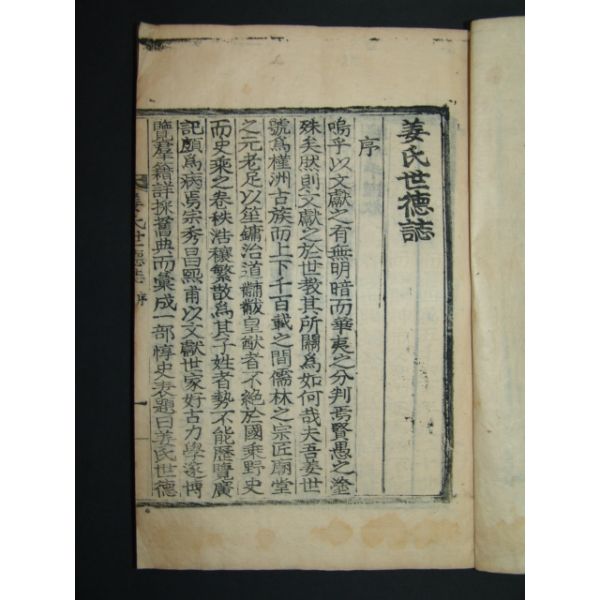 姜氏世德誌
序
嗚乎以文獻之有無明暗而華夷之分判焉賢愚之塗
殊矣然則文獻之於世敎其所關爲如何哉夫吾姜世
號爲槿洲古族而上下千百載之間儒林之宗匠廟堂
之元老足以笙鏞治道黼黻皇猷者不絶於國乘野史
而史乘之卷秩浩穰繁散爲其子姓者勢不能歷覽廣
記頗爲病焉宗秀昌熙甫以文獻世家好古力學遂博
覽羣籍詳採舊典而彙成一部惇史表題曰姜氏世德
姜氏世德誌 序 一